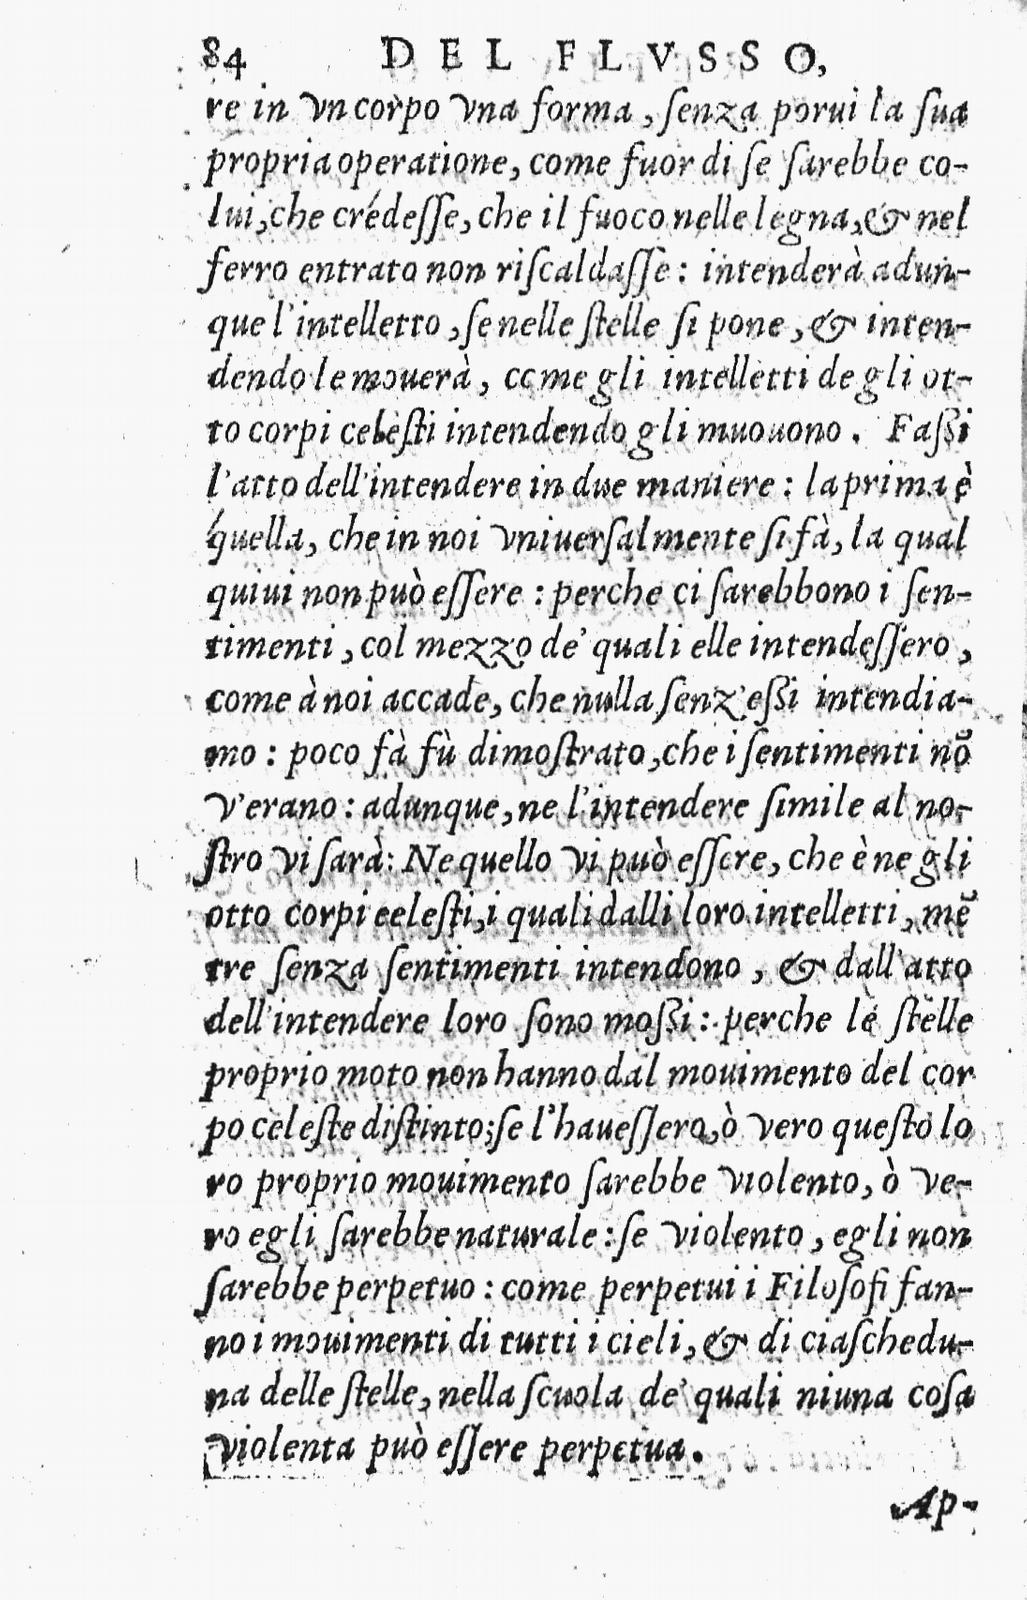 84 DEL FLVSSO,
re in vn corpo vna forma, ſenza porui la ſua
propria operatione, come fuor di ſe ſarebbe co-
lui, che crédeſſe, che il fuoco nelle legna, & nel
ferro entrato non riſcaldaſſe: intenderà adun-
que l'intelletto, ſe nelle ſtelle ſi pone, & inten-
dendo le mouerà, come gli intelletti de gli ot-
to corpi celeſti intendendo gli muouono. Faſſi
l'atto dell'intendere in due maniere: la prima è
quella, che in noi vniuerſalmente ſi fà, la qual
quiui non può eſſere: perche ci ſarebbono i ſen-
timenti, col mezzo de' quali elle intendeſſero,
come à noi accade, che nulla ſenz'eſſi intendia-
mo: poco fà fù dimoſtrato, che i ſentimenti nō
v'erano: adunque, ne l'intendere ſimile al no-
ſtro vi ſarà: Ne quello vi può eſſere, che è ne gli
otto corpi celeſti, i quali dalli loro intelletti, mē
tre ſenza ſentimenti intendono, & dall'atto
dell'intendere loro ſono moſſi: perche le ſtelle
proprio moto non hanno dal mouimento del cor
po celeſte diſtinto; ſe l'haueſſero, ò vero queſto lo
ro proprio mouimento ſarebbe violento, ò ve-
ro egli ſarebbe naturale: ſe violento, egli non
ſarebbe perpetuo: come perpetui i Filoſofi fan-
no i mouimenti di tutti i cieli, & di ciaſchedu-
na delle ſtelle, nella ſcuola de' quali niuna coſa
violenta può eſſere perpetua.
Ap-